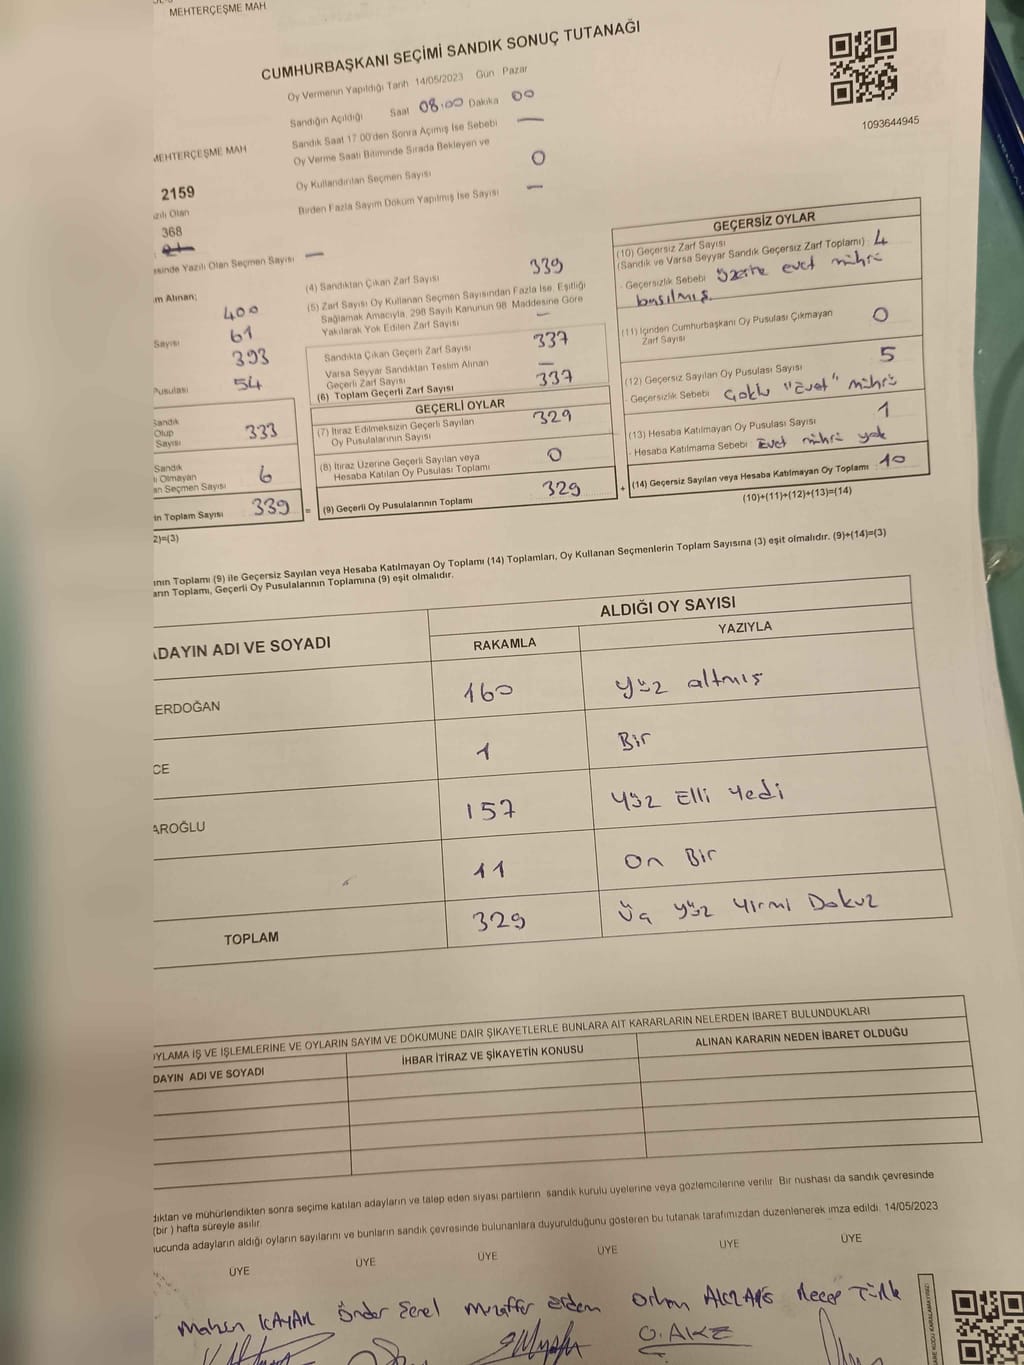 MEHTERÇEŞME MAH
CUMHURBAŞKANI SEÇİMİ SANDIK SONUÇ TUTANAĞI
Oy Vermenin Yapıldığı Tarih 14/05/2023 Gün Pazar
Sandığın Açıldığı Saat 08:00 Dakika 00
Sandık Saat 17:00'den Sonra Açımış İse Sebebi —
Oy Verme Saati Bitiminde Sırada Bekleyen ve
Oy Kullandırılan Seçmen Sayısı 0
Birden Fazla Sayım Döküm Yapılmış İse Sayısı —
1093644945
MEHTERÇEŞME MAH
2159
zılı Olan
368
esinde Yazılı Olan Seçmen Sayısı —
m Alınan;
400
Sayısı 61
393
Pusulası 54
Sandık
Olup
Sayısı 333
Sandık
lı Olmayan
an Seçmen Sayısı 6
in Toplam Sayısı 339 =
2)=(3)
(4) Sandıktan Çıkan Zarf Sayısı 339
(5) Zarf Sayısı Oy Kullanan Seçmen Sayısından Fazla İse, Eşitliği
Sağlamak Amacıyla, 298 Sayılı Kanunun 98. Maddesine Göre
Yakılarak Yok Edilen Zarf Sayısı —
Sandıkta Çıkan Geçerli Zarf Sayısı 337
Varsa Seyyar Sandıktan Teslim Alınan
Geçerli Zarf Sayısı —
(6) Toplam Geçerli Zarf Sayısı 337
GEÇERLİ OYLAR
(7) İtiraz Edilmeksizin Geçerli Sayılan
Oy Pusulalarının Sayısı 329
(8) İtiraz Üzerine Geçerli Sayılan veya
Hesaba Katılan Oy Pusulası Toplamı 0
(9) Geçerli Oy Pusulalarının Toplamı 329 +
GEÇERSİZ OYLAR
(10) Geçersiz Zarf Sayısı
(Sandık ve Varsa Seyyar Sandık Geçersiz Zarf Toplamı) 4
- Geçersizlik Sebebi Üzerine evet mührü
basılmış.
(11) İçinden Cumhurbaşkanı Oy Pusulası Çıkmayan
Zarf Sayısı 0
(12) Geçersiz Sayılan Oy Pusulası Sayısı 5
- Geçersizlik Sebebi Çoklu "Evet" mührü
(13) Hesaba Katılmayan Oy Pusulası Sayısı 1
- Hesaba Katılmama Sebebi Evet mührü yok
(14) Geçersiz Sayılan veya Hesaba Katılmayan Oy Toplamı 10
(10)+(11)+(12)+(13)=(14)
ının Toplamı (9) ile Geçersiz Sayılan veya Hesaba Katılmayan Oy Toplamı (14) Toplamları, Oy Kullanan Seçmenlerin Toplam Sayısına (3) eşit olmalıdır. (9)+(14)=(3)
arın Toplamı, Geçerli Oy Pusulalarının Toplamına (9) eşit olmalıdır.
ADAYIN ADI VE SOYADI
ALDIĞI OY SAYISI
RAKAMLA YAZIYLA
ERDOĞAN 160 Yüz altmış
CE 1 Bir
AROĞLU 157 Yüz Elli Yedi
11 On Bir
TOPLAM 329 Üç yüz Yirmi Dokuz
OYLAMA İŞ VE İŞLEMLERİNE VE OYLARIN SAYIM VE DÖKÜMÜNE DAİR ŞİKAYETLERLE BUNLARA AİT KARARLARIN NELERDEN İBARET BULUNDUKLARI
DAYIN ADI VE SOYADI İHBAR İTİRAZ VE ŞİKAYETİN KONUSU ALINAN KARARIN NEDEN İBARET OLDUĞU
dıktan ve mühürlendikten sonra seçime katılan adayların ve talep eden siyasi partilerin sandık kurulu üyelerine veya gözlemcilerine verilir. Bir nushası da sandık çevresinde
(bir ) hafta süreyle asılır.
ucunda adayların aldığı oyların sayılarını ve bunların sandık çevresinde bulunanlara duyurulduğunu gösteren bu tutanak tarafımızdan düzenlenerek imza edildi. 14/05/2023
ÜYE ÜYE ÜYE ÜYE ÜYE ÜYE
KAYAR Önder Muzaffer Erdem Orhan Recep Türk
O. AKE